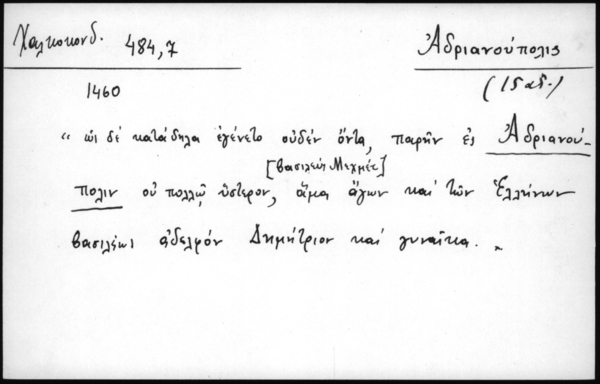 Χαλκοκονδ. 484,7
Ἀδριανούπολις
1460
(15 αἰ.)
“ ὡς δὲ κατάδηλα ἐγένετο οὐδὲν ὄντα, παρῆν ἐς Ἀδριανού-
[βασιλεὺς Μεχμέτ]
πολιν οὐ πολλῷ ὕστερον, ἅμα ἄγων καὶ τῶν Ἑλλήνων
βασιλέως ἀδελφὸν Δημήτριον καὶ γυναῖκα. „